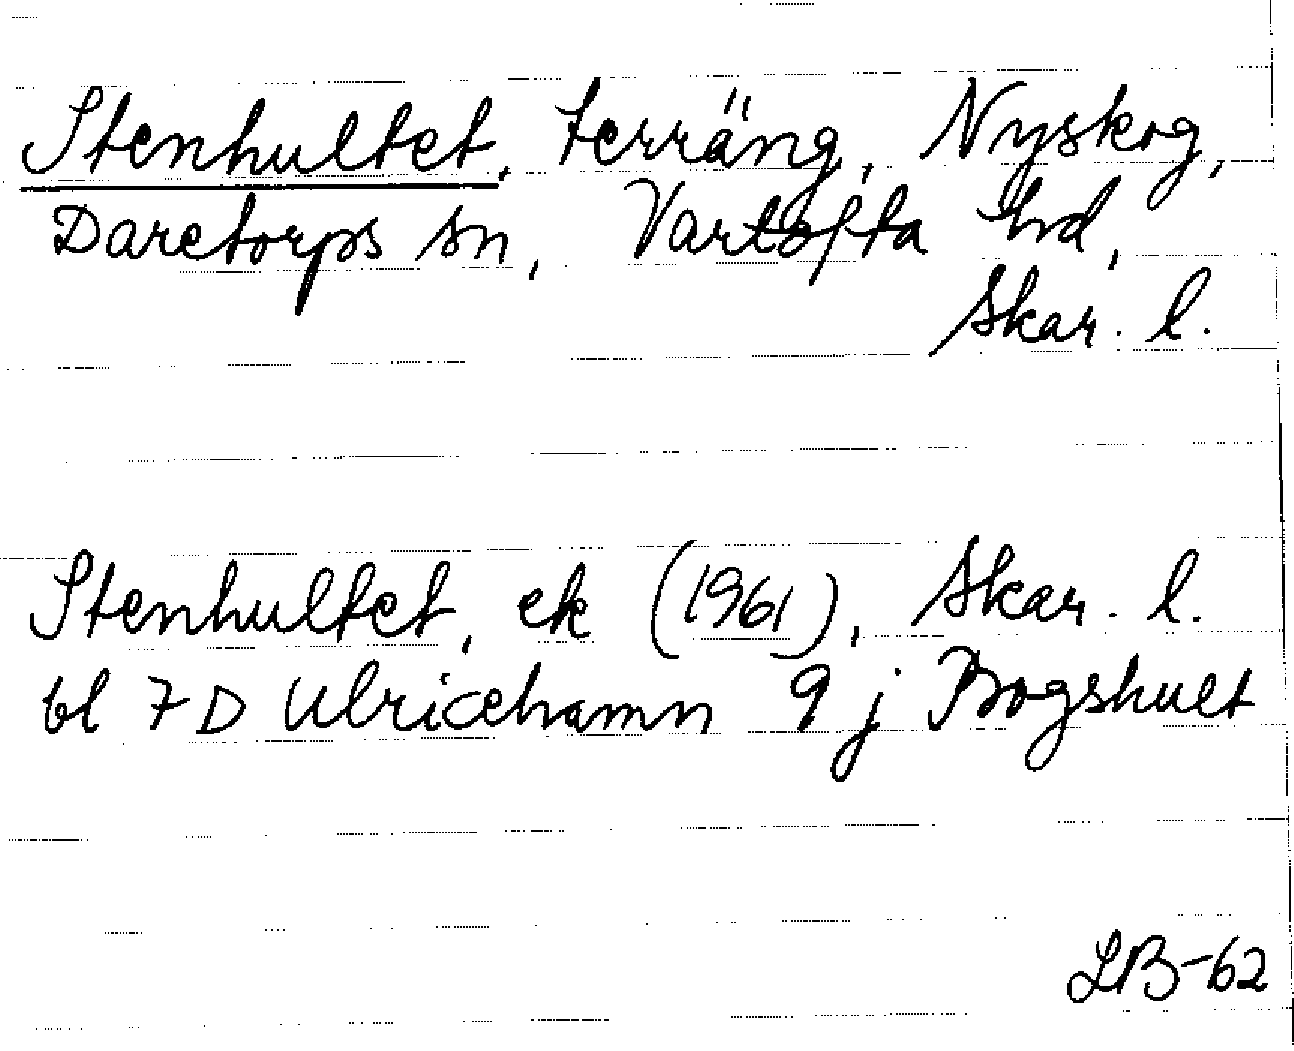 Stenhultet, terräng, Nyskog,
Daretorps sn, Vartofta hd,
Skar. l.
Stenhultet, ek (1961), Skar. l.
bl 7 D Ulricehamn 9 j Bogshult
LB-62